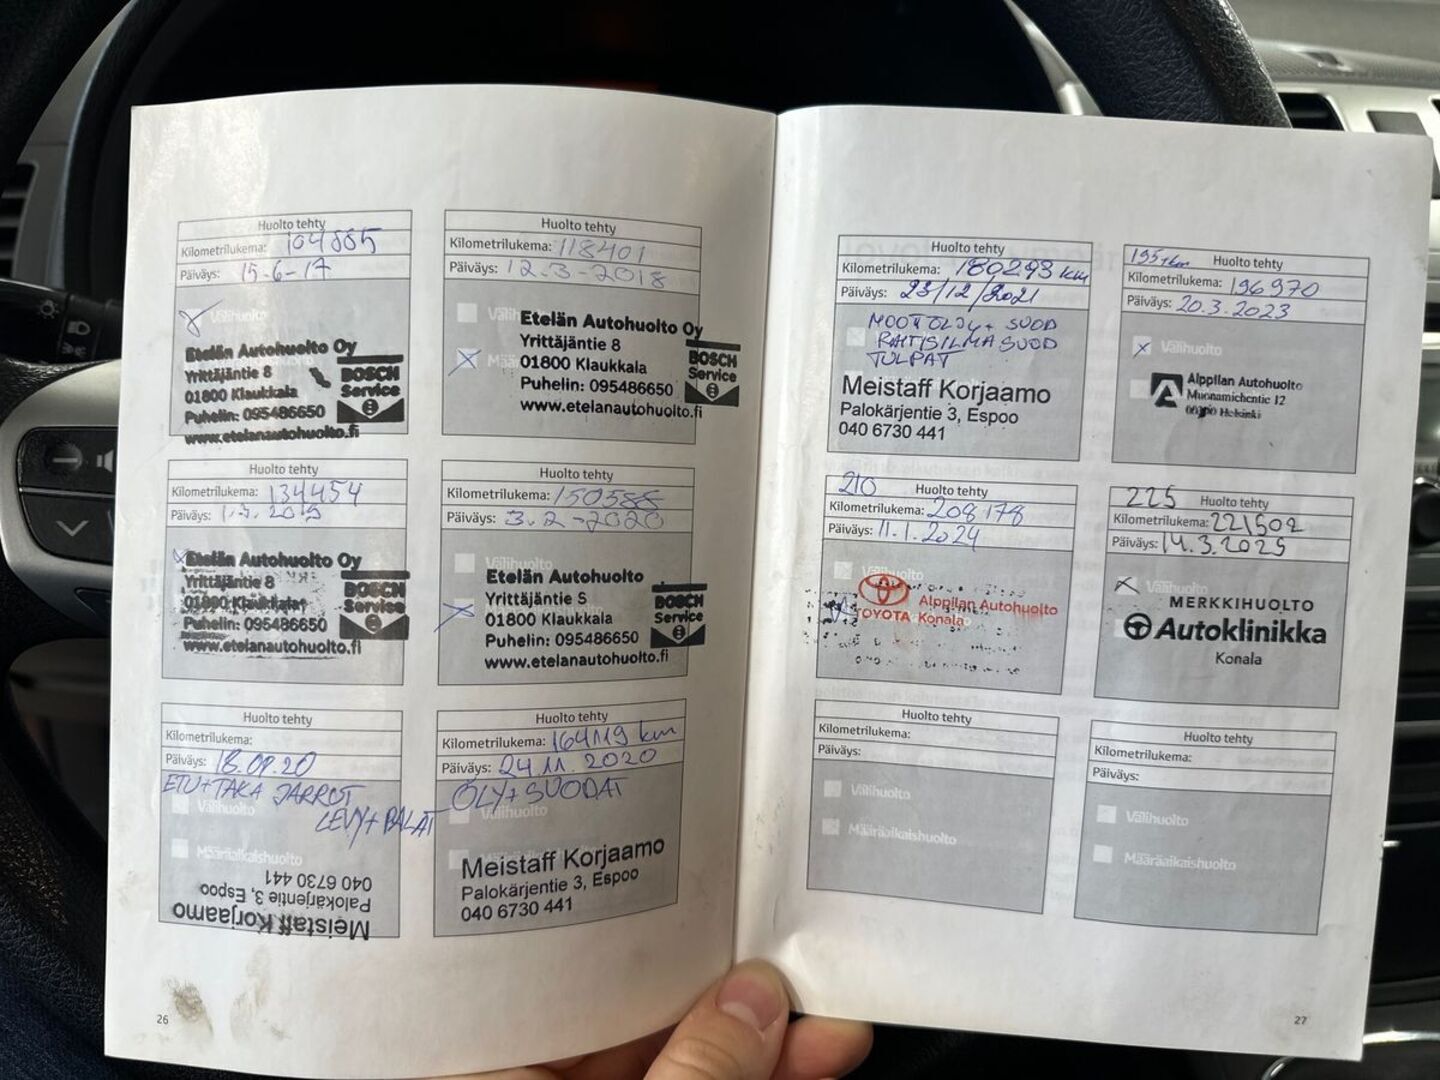 Huolto tehty
Kilometrilukema: 104885
Päiväys: 15-6-17
Välihuolto
Etelän Autohuolto Oy
Yrittäjäntie 8
01800 Klaukkala
Puhelin: 095486650
www.etelanautohuolto.fi
BOSCH
Service
Huolto tehty
Kilometrilukema: 118401
Päiväys: 12.3-2018
Etelän Autohuolto Oy
Yrittäjäntie 8
01800 Klaukkala
Puhelin: 095486650
www.etelanautohuolto.fi
BOSCH
Service
Huolto tehty
Kilometrilukema: 134454
Päiväys:
Etelän Autohuolto Oy
Yrittäjäntie 8
01800 Klaukkala
Puhelin: 095486650
www.etelanautohuolto.fi
BOSCH
Service
Huolto tehty
Kilometrilukema: 150588
Päiväys: 3.2-2020
Välihuolto
Etelän Autohuolto
Yrittäjäntie 8
01800 Klaukkala
Puhelin: 095486650
www.etelanautohuolto.fi
BOSCH
Service
Huolto tehty
Kilometrilukema:
Päiväys: 18.09.20
ETU+TAKA JARRUT
LEVY+PALAT
Välihuolto
Määräaikaishuolto
Meistaff Korjaamo
Palokärjentie 3, Espoo
040 6730 441
Huolto tehty
Kilometrilukema: 164119 km
Päiväys: 24.11.2020
ÖLY+SUODAT
Meistaff Korjaamo
Palokärjentie 3, Espoo
040 6730 441
26
Huolto tehty
Kilometrilukema: 180293 km
Päiväys: 23/12/2021
MOOTÖLJY+SUOD
RAITISILMASUOD
TULPAT
Meistaff Korjaamo
Palokärjentie 3, Espoo
040 6730 441
195tkm Huolto tehty
Kilometrilukema: 196970
Päiväys: 20.3.2023
Välihuolto
Alppilan Autohuolto
Muonamiehentie 12
Helsinki
210 Huolto tehty
Kilometrilukema: 208178
Päiväys: 11.1.2024
Välihuolto
TOYOTA
Alppilan Autohuolto
Konala
225 Huolto tehty
Kilometrilukema: 221502
Päiväys: 14.3.2025
Välihuolto
MERKKIHUOLTO
Autoklinikka
Konala
Huolto tehty
Kilometrilukema:
Päiväys:
Välihuolto
Määräaikaishuolto
Huolto tehty
Kilometrilukema:
Päiväys:
Välihuolto
Määräaikaishuolto
27